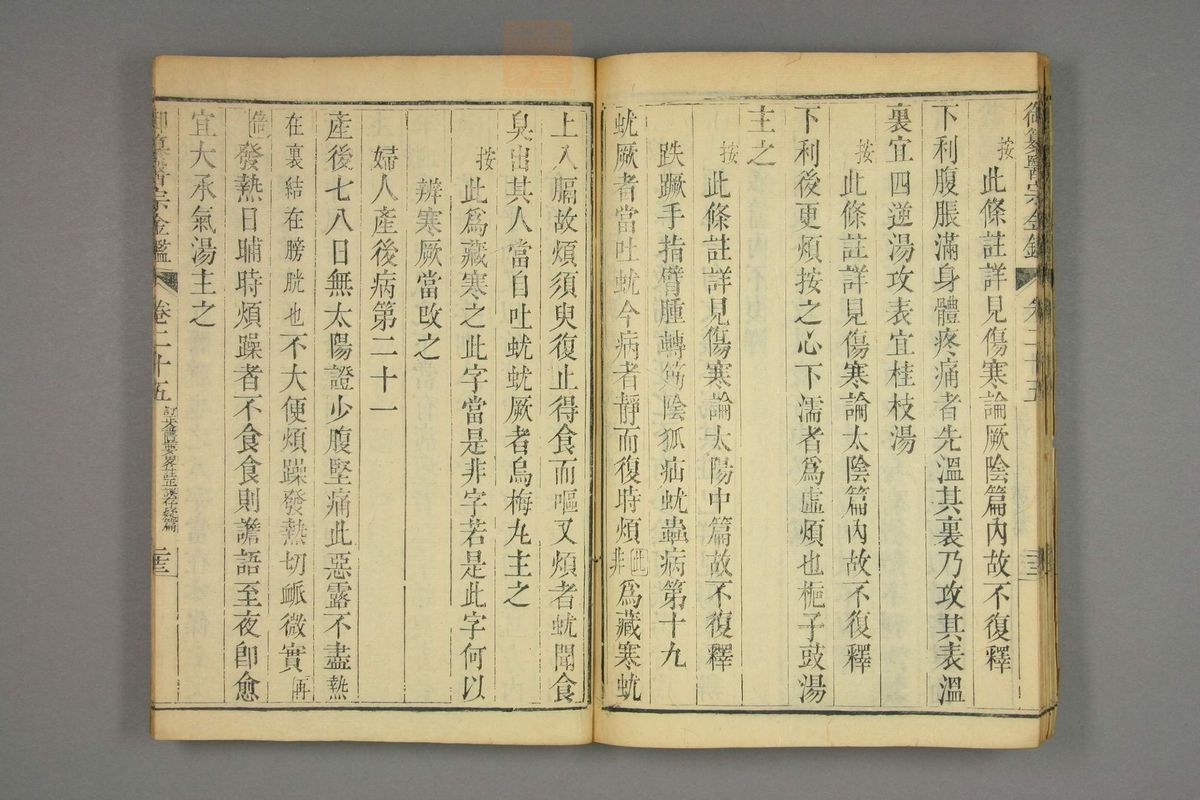 御纂醫宗金鑑 卷二十五
按此條註詳見傷寒論厥陰篇內故不復釋
下利腹脹滿身體疼痛者先溫其裏乃攻其表溫
裏宜四逆湯攻表宜桂枝湯
按此條註詳見傷寒論太陰篇內故不復釋
下利後更煩按之心下濡者爲虛煩也梔子豉湯
主之
按此條註詳見傷寒論太陽中篇故不復釋
趺蹶手指臂腫轉筋陰狐疝蚘蟲病第十九
蚘厥者當吐蚘今病者靜而復時煩此非爲藏寒蚘
上入膈故煩須臾復止得食而嘔又煩者蚘聞食
臭出其人當自吐蚘蚘厥者烏梅丸主之
按此爲藏寒之此字當是非字若是此字何以
辨寒厥當攺之
婦人產後病第二十一
產後七八日無太陽證少腹堅痛此惡露不盡熱
在裏結在膀胱也不大便煩躁發熱切脈微實再
倍發熱日晡時煩躁者不食食則譫語至夜卽愈
宜大承氣湯主之
御纂醫宗金鑑 卷二十五 訂正金匱要略註正誤存疑篇 二十三